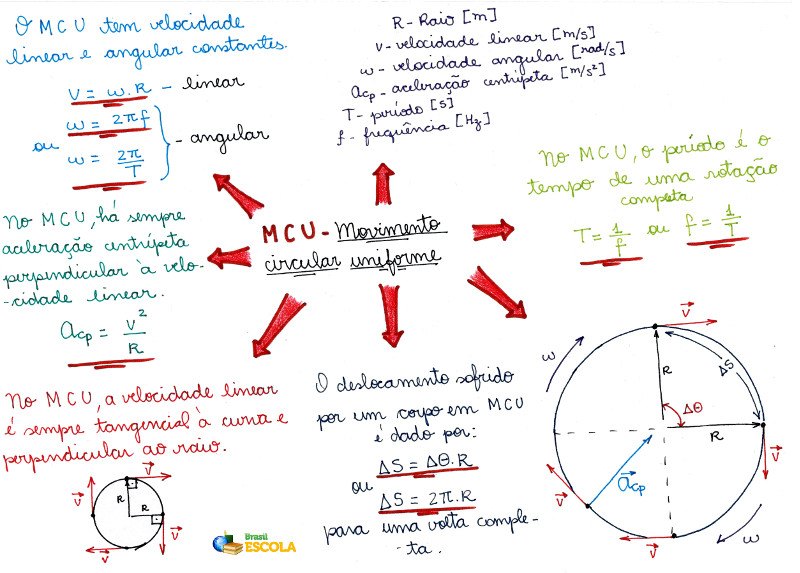 O MCU tem velocidade
linear e angular constantes.
V = ω.R - linear
ou
ω = 2πf
ω = 2π/T
- angular
R - Raio [m]
v - velocidade linear [m/s]
ω - velocidade angular [rad/s]
acp - aceleração centrípeta [m/s²]
T - período [s]
f - frequência [Hz]
No MCU, o período é o
tempo de uma rotação
completa
T = 1/f ou f = 1/T
MCU - Movimento
circular uniforme
No MCU, há sempre
aceleração centrípeta
perpendicular à velo-
-cidade linear.
acp = V²/R
No MCU, a velocidade linear
é sempre tangencial à curva e
perpendicular ao raio.
V
V
R
R
V
V
O deslocamento sofrido
por um corpo em MCU
é dado por:
ΔS = Δθ.R
ou
ΔS = 2π.R
para uma volta comple-
-ta.
V
ω
R
ΔS
Δθ
R
V
acp
V
V
ω
Brasil
ESCOLA